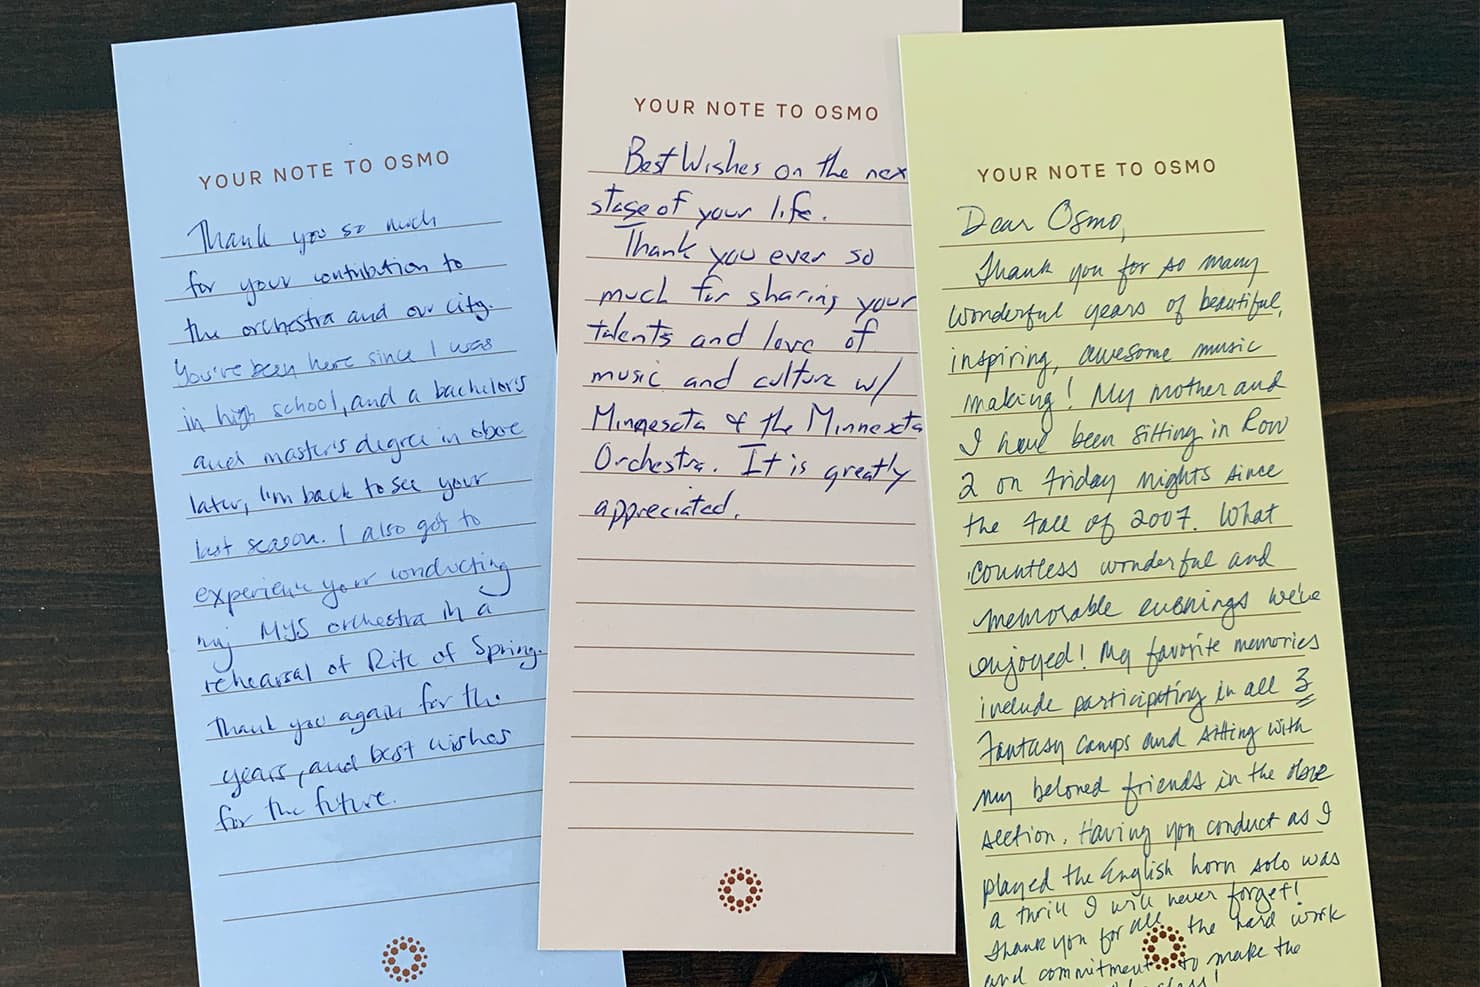 YOUR NOTE TO OSMO
Thank you so much
for your contribution to
the orchestra and our city.
You've been here since I was
in high school, and a bachelor's
and master's degree in oboe
later, I'm back to see your
last season. I also got to
experience your conducting
my MYS orchestra in a
rehearsal of Rite of Spring.
Thank you again for the
years, and best wishes
for the future.
YOUR NOTE TO OSMO
Best Wishes on the nex
stage of your life.
Thank you ever so
much for sharing your
talents and love of
music and culture w/
Minnesota & the Minnesota
Orchestra. It is greatly
appreciated.
YOUR NOTE TO OSMO
Dear Osmo,
Thank you for so many
wonderful years of beautiful,
inspiring, awesome music
making! My mother and
I have been sitting in Row
2 on Friday nights since
the Fall of 2007. What
countless wonderful and
memorable evenings we've
enjoyed! My favorite memories
include participating in all 3
Fantasy Camps and sitting with
my beloved friends in the oboe
section. Having you conduct as I
played the English horn solo was
a thrill I will never forget!
Thank you for all the hard work
and commitment to make the